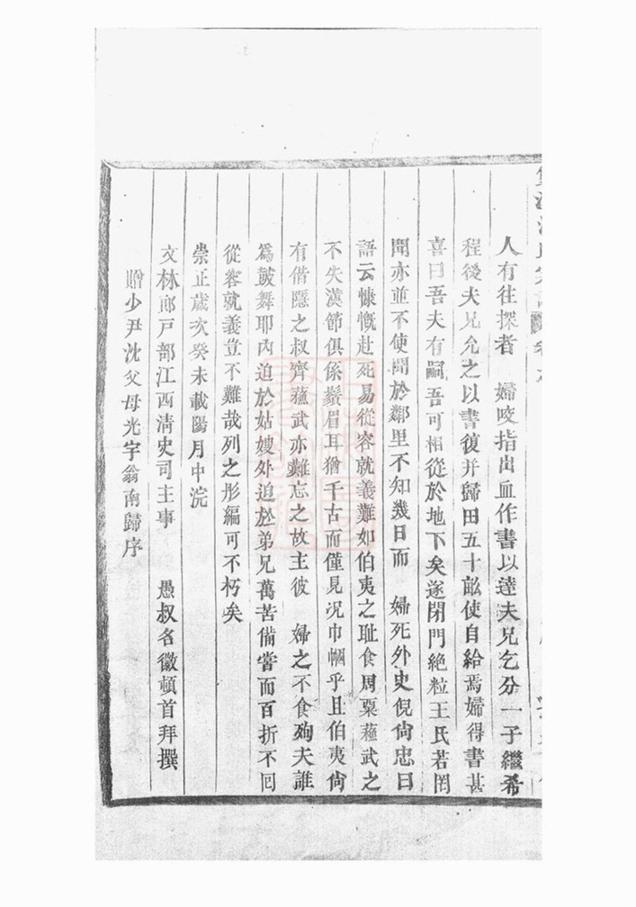 人有往探者　婦咬指出血作書以達夫兄乞分一子繼希
程後夫兄允之以書復并歸田五十畝使自給焉婦得書甚
喜曰吾夫有嗣吾可相從於地下矣遂閉門絶粒王氏若罔
聞亦並不使聞於鄰里不知幾日而　婦死外史倪尙忠曰
語云慷慨赴死易從容就義難如伯夷之耻食周粟蘓武之
不失漢節俱係鬚眉耳猶千古而僅見况巾幗乎且伯夷尙
有偕隱之叔齊蘓武亦難忘之故主彼　婦之不食殉夫誰
爲鼓舞耶內迫於姑嫂外迫於弟兄萬苦備嘗而百折不囘
從容就義豈不難哉列之彤編可不朽矣
崇正歲次癸未載陽月中浣
文林郎戸部江西淸史司主事　愚叔名徽頓首拜撰
贈少尹沈父母光宇翁南歸序